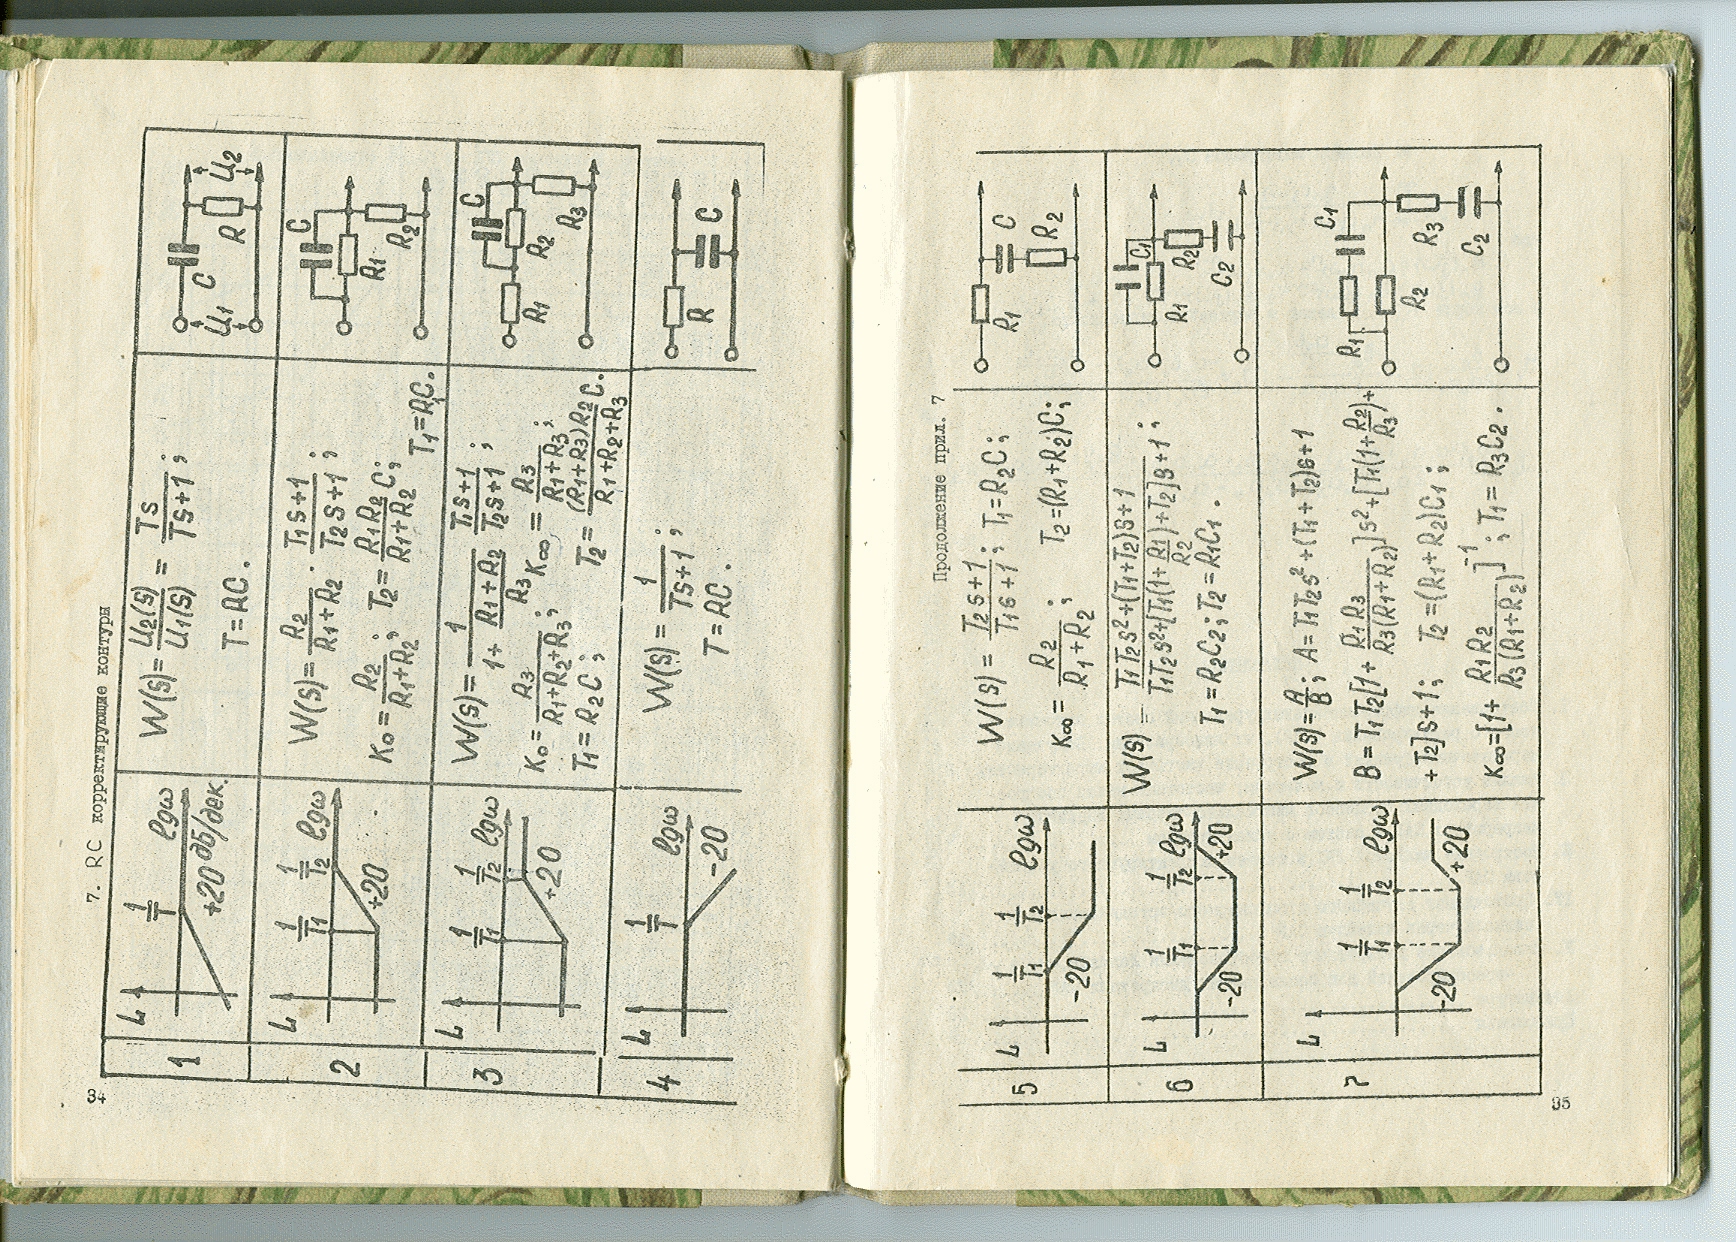 34
7. RC корректирующие контуры
1
L
1/T
lgω
+20 дб/дек.
W(s)= U2(s)/U1(s) = Ts/Ts+1 ;
T=RC.
U1
C
R
U2
2
L
1/T1
1/T2
lgω
+20
W(s)= R2/R1+R2 · T1s+1/T2s+1 ;
K0= R2/R1+R2 ; T2= R1R2/R1+R2 C; T1=R1C.
R1
C
R2
3
L
1/T1
1/T2
lgω
+20
W(s)= 1/1+ R1+R2/R3 T1s+1/T2s+1 ;
K0= R3/R1+R2+R3 ; K∞= R3/R1+R3 ;
T1=R2C; T2= (R1+R3)R2/R1+R2+R3 C.
R1
R2
C
R3
4
L
1/T
lgω
-20
W(s)= 1/Ts+1 ;
T=RC.
R
C
Продолжение прил. 7
5
L
1/T1
1/T2
lgω
-20
W(s)= T2s+1/T1s+1 ; T1=R2C;
K∞= R2/R1+R2 ; T2=(R1+R2)C;
R1
C
R2
6
L
1/T1
1/T2
lgω
-20
+20
W(s)= T1T2s²+(T1+T2)s+1/T1T2s²+[T1(1+R1/R2)+T2]s+1 ;
T1=R2C2; T2=R1C1.
R1
C1
R2
C2
7
L
1/T1
1/T2
lgω
-20
+20
W(s)= A/B ; A=T1T2s²+(T1+T2)s+1
B=T1T2[1+ R1R3/R3(R1+R2) ]s²+[T1(1+R2/R3)+
+T2]s+1; T2=(R1+R2)C1;
K∞=[1+ R1R2/R3(R1+R2) ]⁻¹; T1=R3C2.
R1
R2
C1
R3
C2
35